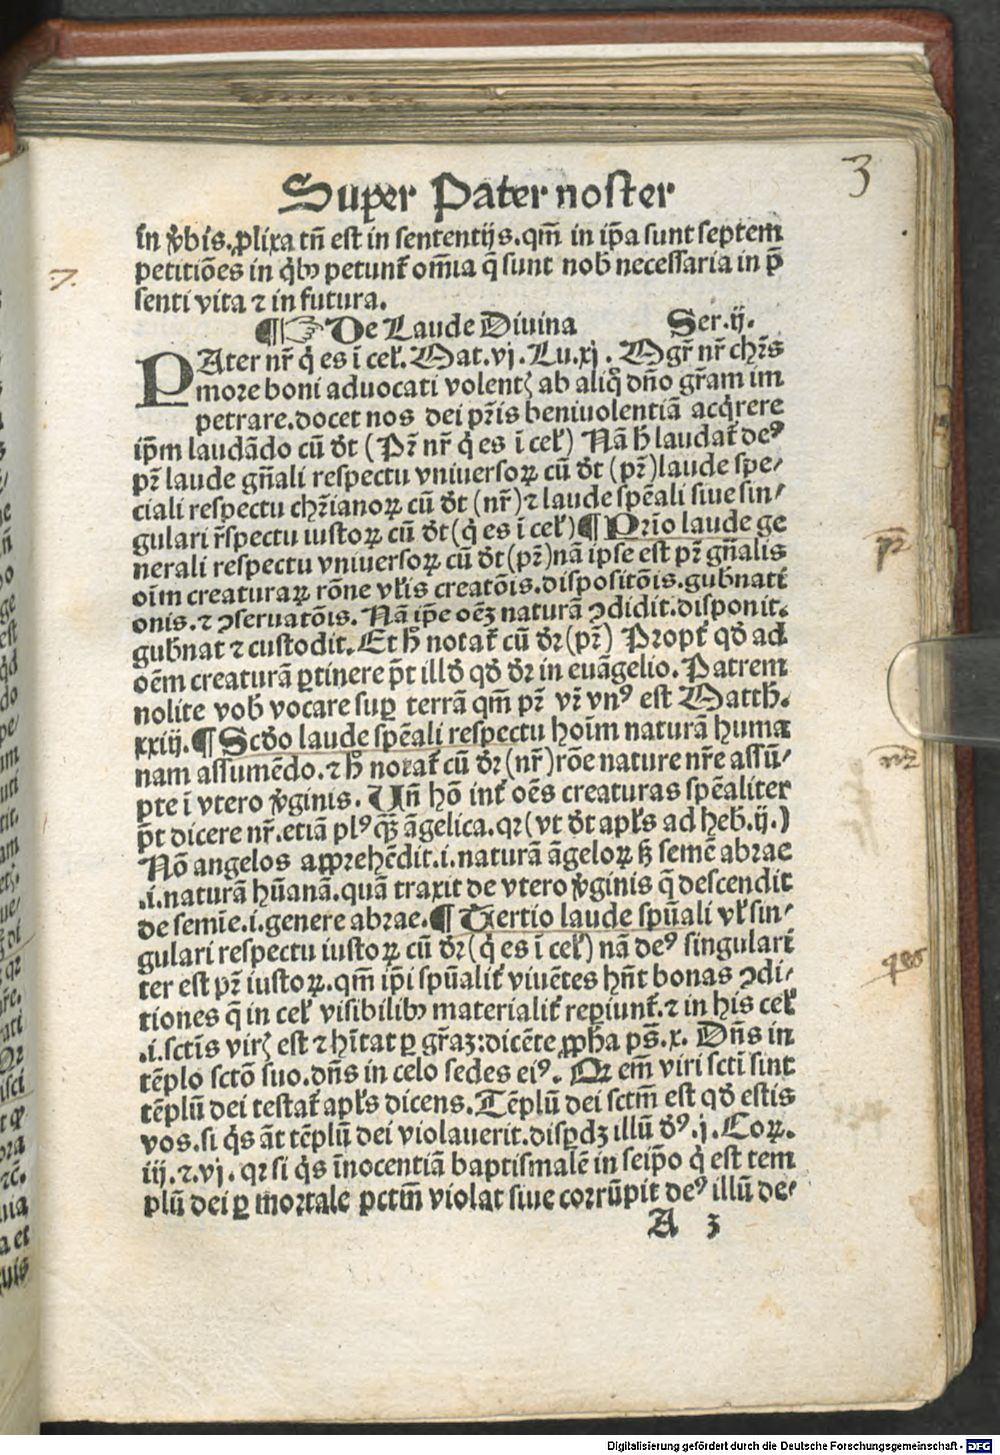 3
Super Pater noster
in v̄bis. ꝓlixa tn̄ est in sententijs. qm̄ in ip̄a sunt septem
7.
petitiōes in q̇bꝫ petunt᷑ om̄ia q̄ sunt nob̄ necessaria in p̄
senti vita ⁊ in futura.
¶☞ De Laude Diuina Ser. ij.
PAter nr̄ q̇ es ī cel̄. Mat. vj. Lu. xj. Mgr̄ nr̄ chr̄s
more boni aduocati volentꝭ ab aliq̊ dn̄o gr̄am im
petrare. docet nos dei pr̄is beniuolentiā acq̇rere
ip̄m laudādo cū d̄t (Pr̄ nr̄ q̇ es ī cel̄) Nā h̄ laudat᷑ deꝰ
pr̄ laude gn̄ali respectu vniuersoꝝ cū d̄t (pr̄) laude spe⸗
ciali respectu chr̄ianoꝝ cū d̄t (nr̄) ⁊ laude sp̄eali siue sin⸗
gulari r̄spectu iustoꝝ cū d̄t (q̇ es ī cel̄) ¶ Pr̄io laude ge
nerali respectu vniuersoꝝ cū d̄t (pr̄) nā ipse est pr̄ gn̄alis
pr̄
oīm creaturaꝝ rōne vl̄is creatōis. dispositōis. gub̄nati
onis. ⁊ ꝯseruatōis. Nā ip̄e oēꝫ naturā ꝯdidit. disponit.
gub̄nat ⁊ custodit. Et h̄ notat᷑ cū dr̄ (pr̄) Propt᷑ qd̄ ad
oēm creaturā ꝑtinere p̄t illd̄ qd̄ dr̄ in euāgelio. Patrem
nolite vob̄ vocare suꝑ terrā qm̄ pr̄ vr̄ vnꝰ est Matth̄.
xxiij. ¶ Scd̄o laude sp̄eali respectu hoīm naturā huma
nam assumēdo. ⁊ h̄ notat᷑ cū dr̄ (nr̄) rōe nature nr̄e assū⸗
nr̄
pte ī vtero v̄ginis. Un̄ hō int᷑ oēs creaturas sp̄ealiter
p̄t dicere nr̄. etiā plꝰ qꝫ̄ āgelica. qꝛ (vt d̄t apl̄s ad heb. ij.)
Nō angelos apprehēdit. i. naturā āgeloꝝ sꝫ semē abrae
.i. naturā hūanā. quā traxit de vtero v̄ginis q̄ descendit
de semīe. i. genere abrae. ¶ Tertio laude sp̄uali vl̄ sin⸗
gulari respectu iustoꝝ cū dr̄ (q̇ es ī cel̄) nā deꝰ singulari
ter est pr̄ iustoꝝ. qm̄ ip̄i sp̄ualit᷑ viuētes hn̄t bonas ꝯdi⸗
tiones q̄ in cel̄ visibilibꝫ materialit᷑ reꝑiunt᷑. ⁊ in his cel̄
.i. sctīs virꝭ est ⁊ hītat ꝑ gr̄aꝫ: dicēte ꝓph̄a ps̄. x. Dn̄s in
tēplo sctō suo. dn̄s in celo sedes eiꝰ. Qꝛ em̄ viri sctī sint
tēplū dei testat᷑ apl̄s dicens. Tēplū dei sctm̄ est qd̄ estis
vos. si q̇s āt tēplū dei violauerit. disꝑdꝫ illū d̄ꝰ. j. Coꝝ.
iij. ⁊. vj. qꝛ si q̇s īnocentiā baptismalē in seip̄o q̇ est tem
plū dei ꝑ mortale pctm̄ violat siue corrūpit deꝰ illū de⸗
A 3
Digitalisierung gefördert durch die Deutsche Forschungsgemeinschaft - DFG